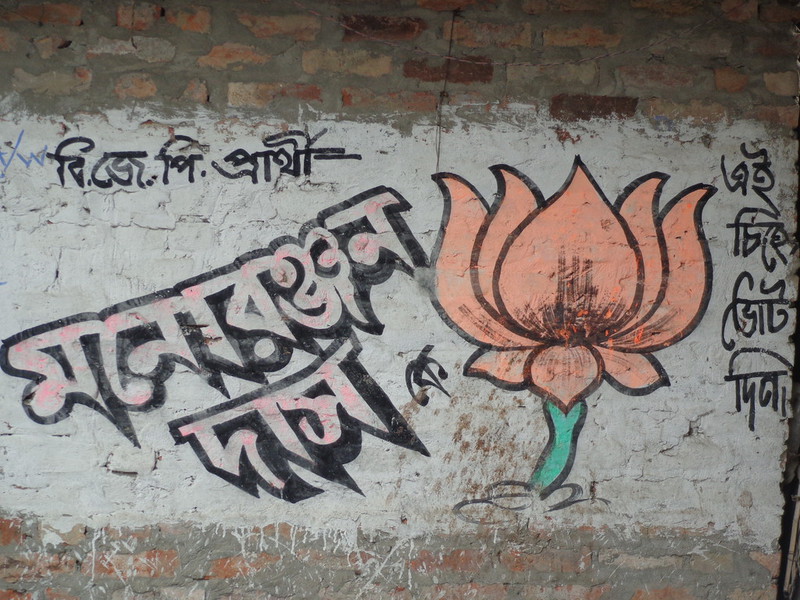 বি.জে.পি. প্রার্থী
মনোরঞ্জন
দাস কে
এই
চিহ্নে
ভোট
দিন